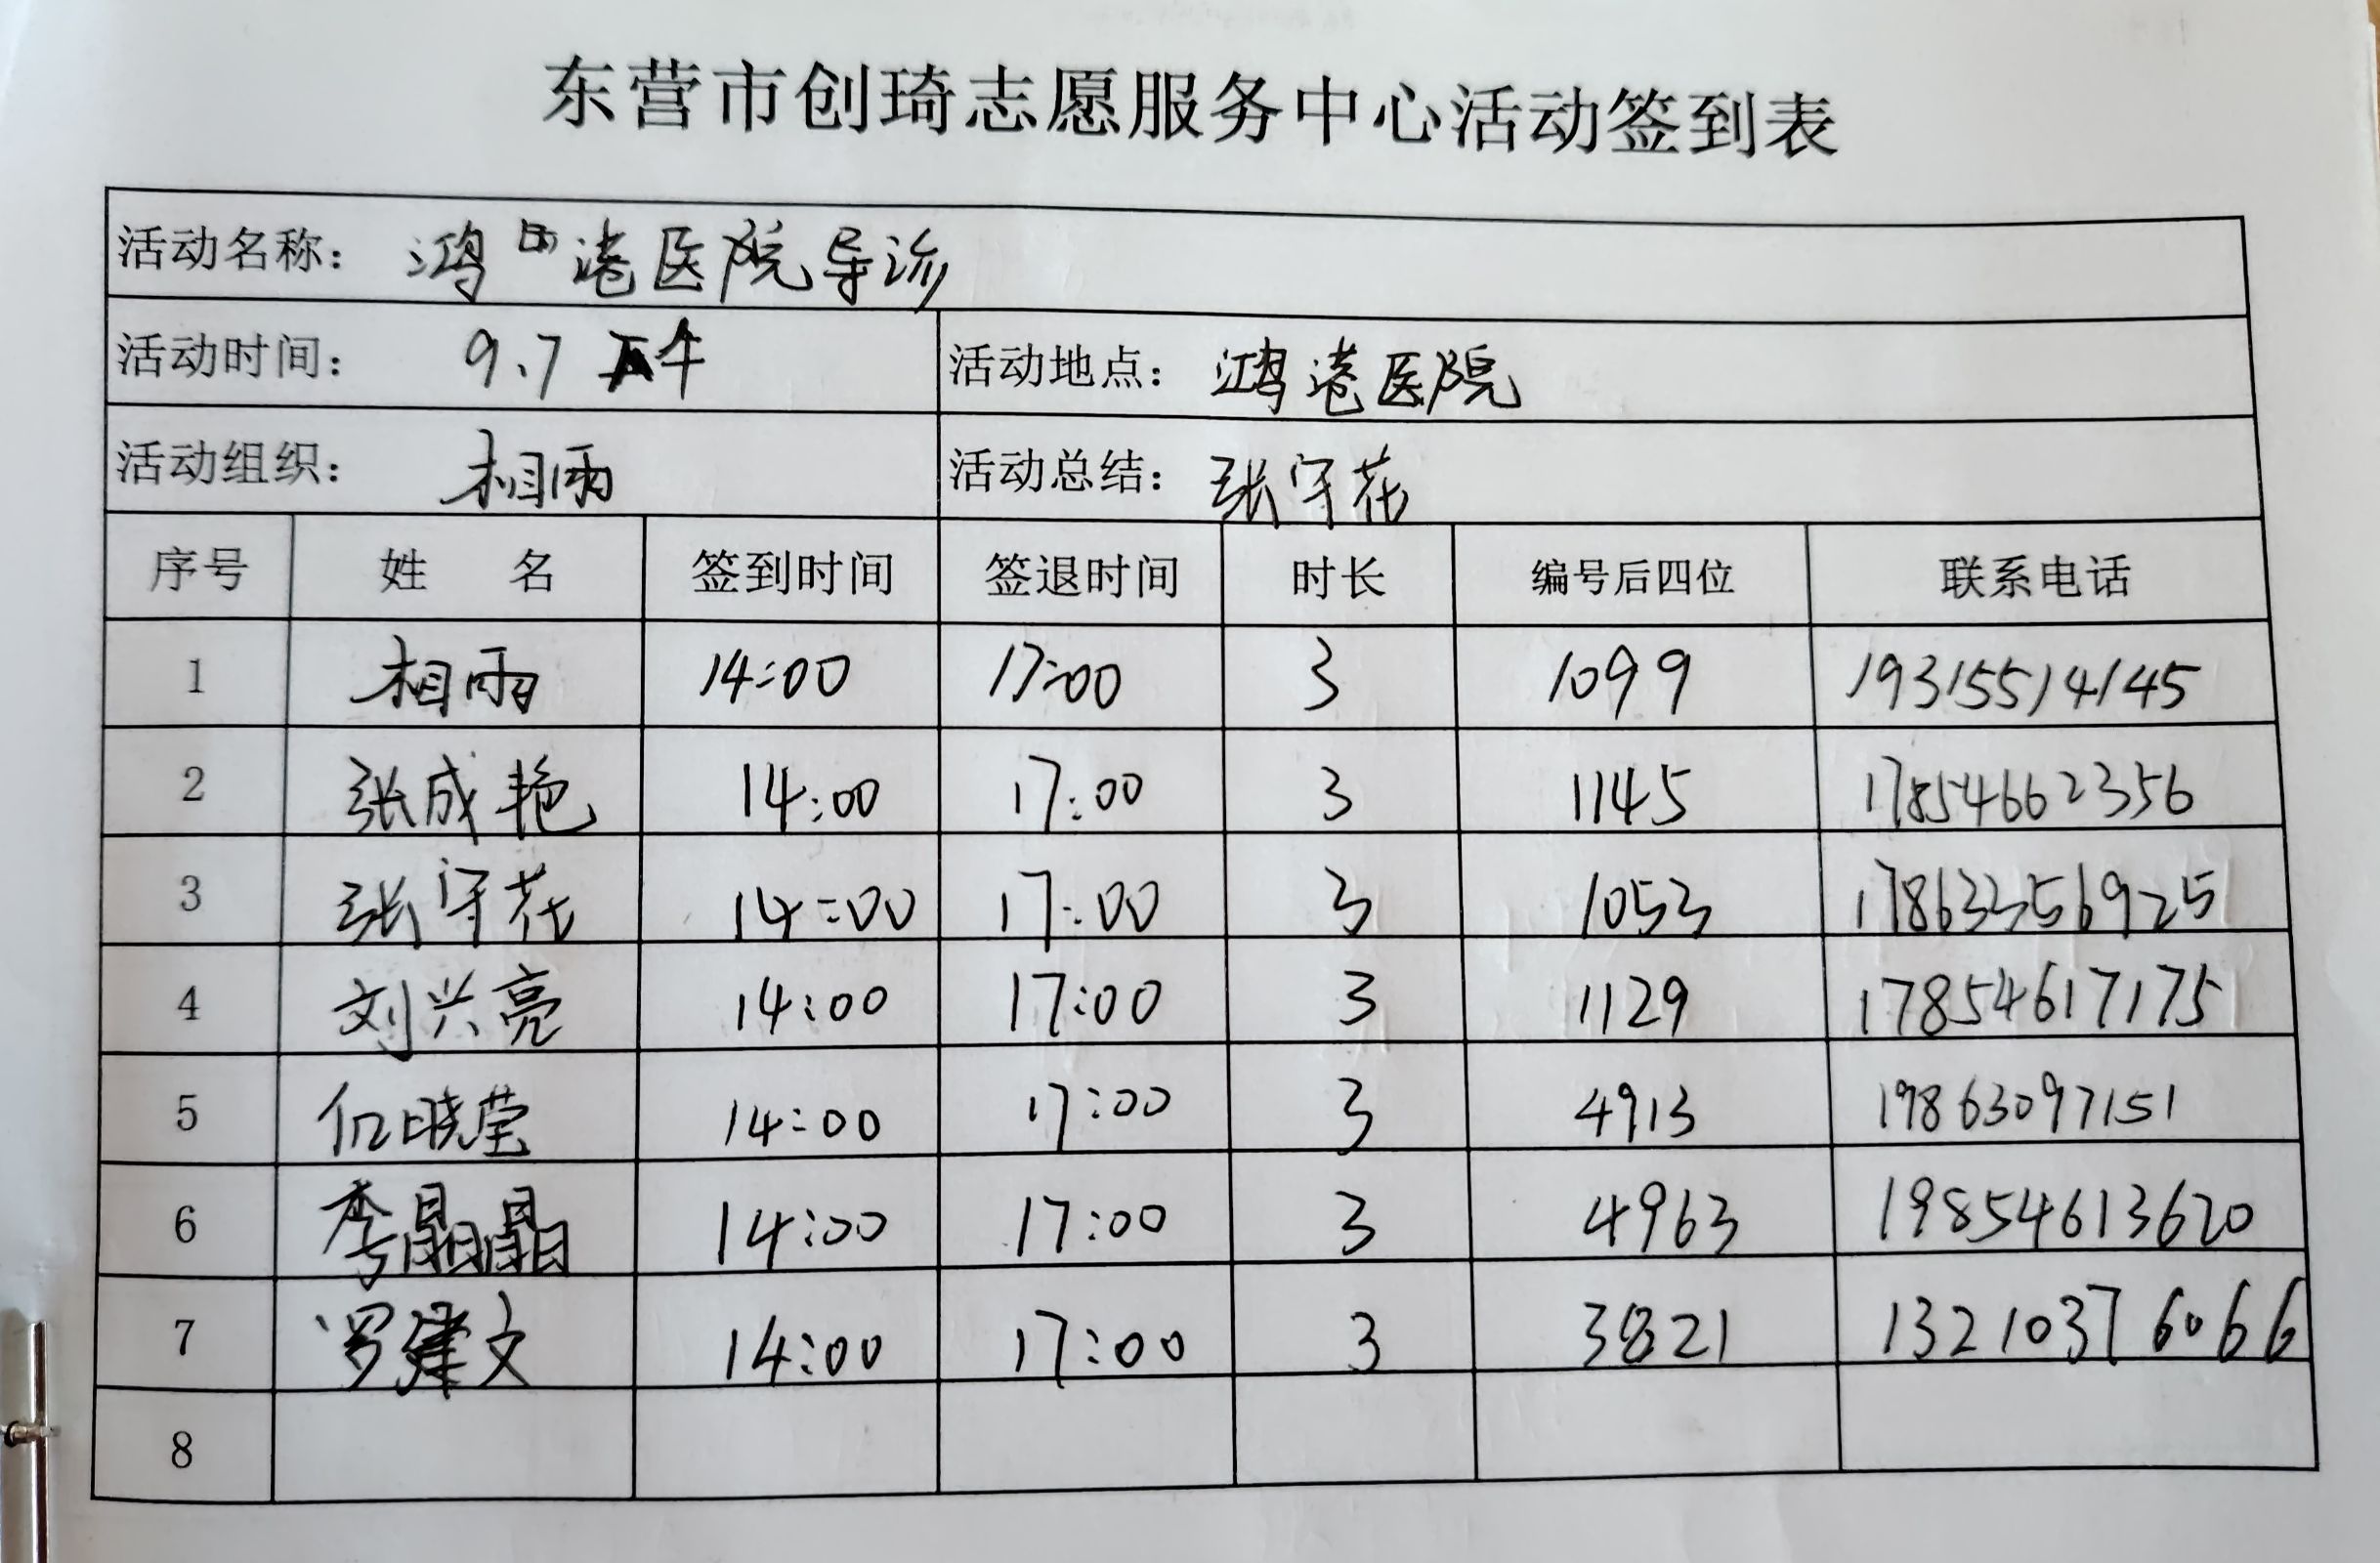 东营市创琦志愿服务中心活动签到表
活动名称： 鸿港医院导诊
活动时间： 9.7 下午 活动地点： 鸿港医院
活动组织： 相雨 活动总结： 张守花
序号 姓 名 签到时间 签退时间 时长 编号后四位 联系电话
1 相雨 14:00 17:00 3 1099 19315514145
2 张成艳 14:00 17:00 3 1145 17854662356
3 张守花 14:00 17:00 3 1053 17863356925
4 刘兴亮 14:00 17:00 3 1129 17854617175
5 晓莹 14:00 17:00 3 4913 19863097151
6 李晶晶 14:00 17:00 3 4963 19854613620
7 罗建文 14:00 17:00 3 3821 13210376066
8